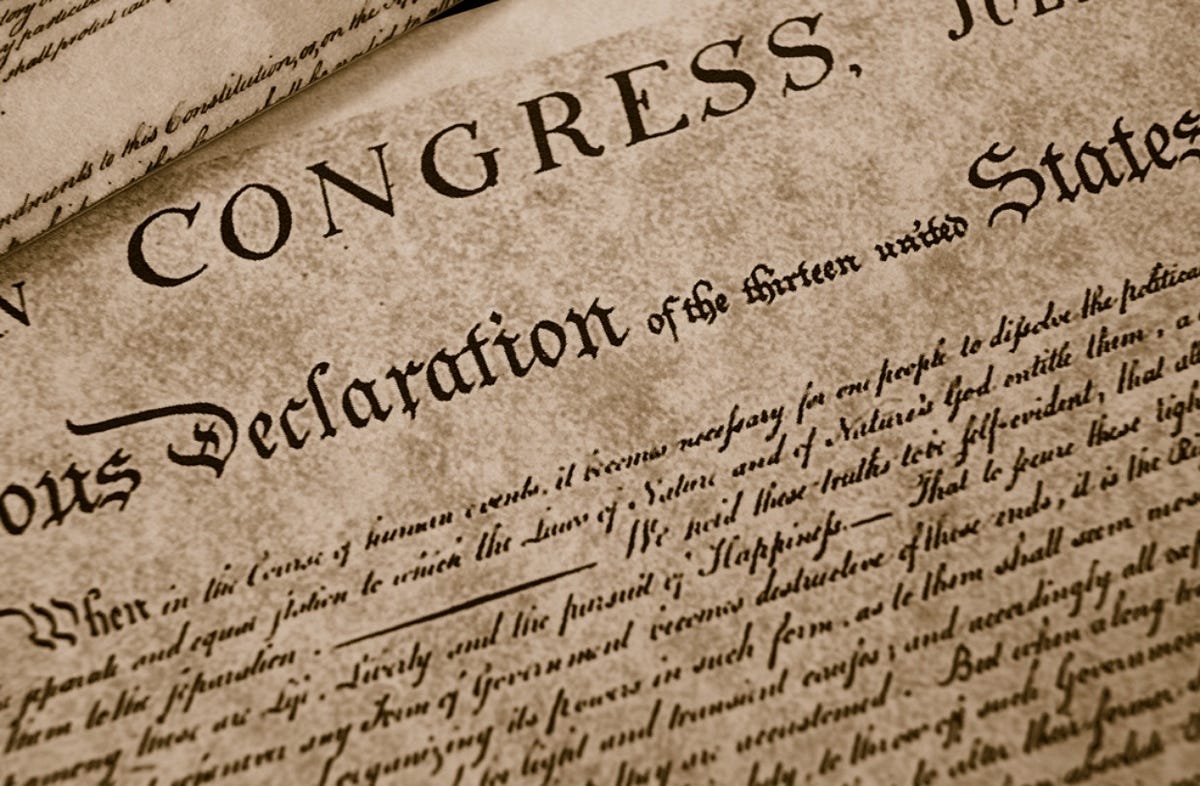 shall protect
to this Constitution, or, on the
N CONGRESS, JUL
ous Declaration of the thirteen united States
When in the Course of human events, it becomes necessary for one people to dissolve the political
separate and equal station to which the Laws of Nature and of Nature's God entitle them, a
them to the separation. We hold these truths to be self-evident, that all
among these are Life, Liberty and the pursuit of Happiness.— That to secure these right
any Form of Government becomes destructive of these ends, it is the Ri
organizing its powers in such form, as to them shall seem mo
for light and transient causes; and accordingly all exp
they are accustomed. But when a long tra
duty, to throw off such Governmen
to alter their former
absolute